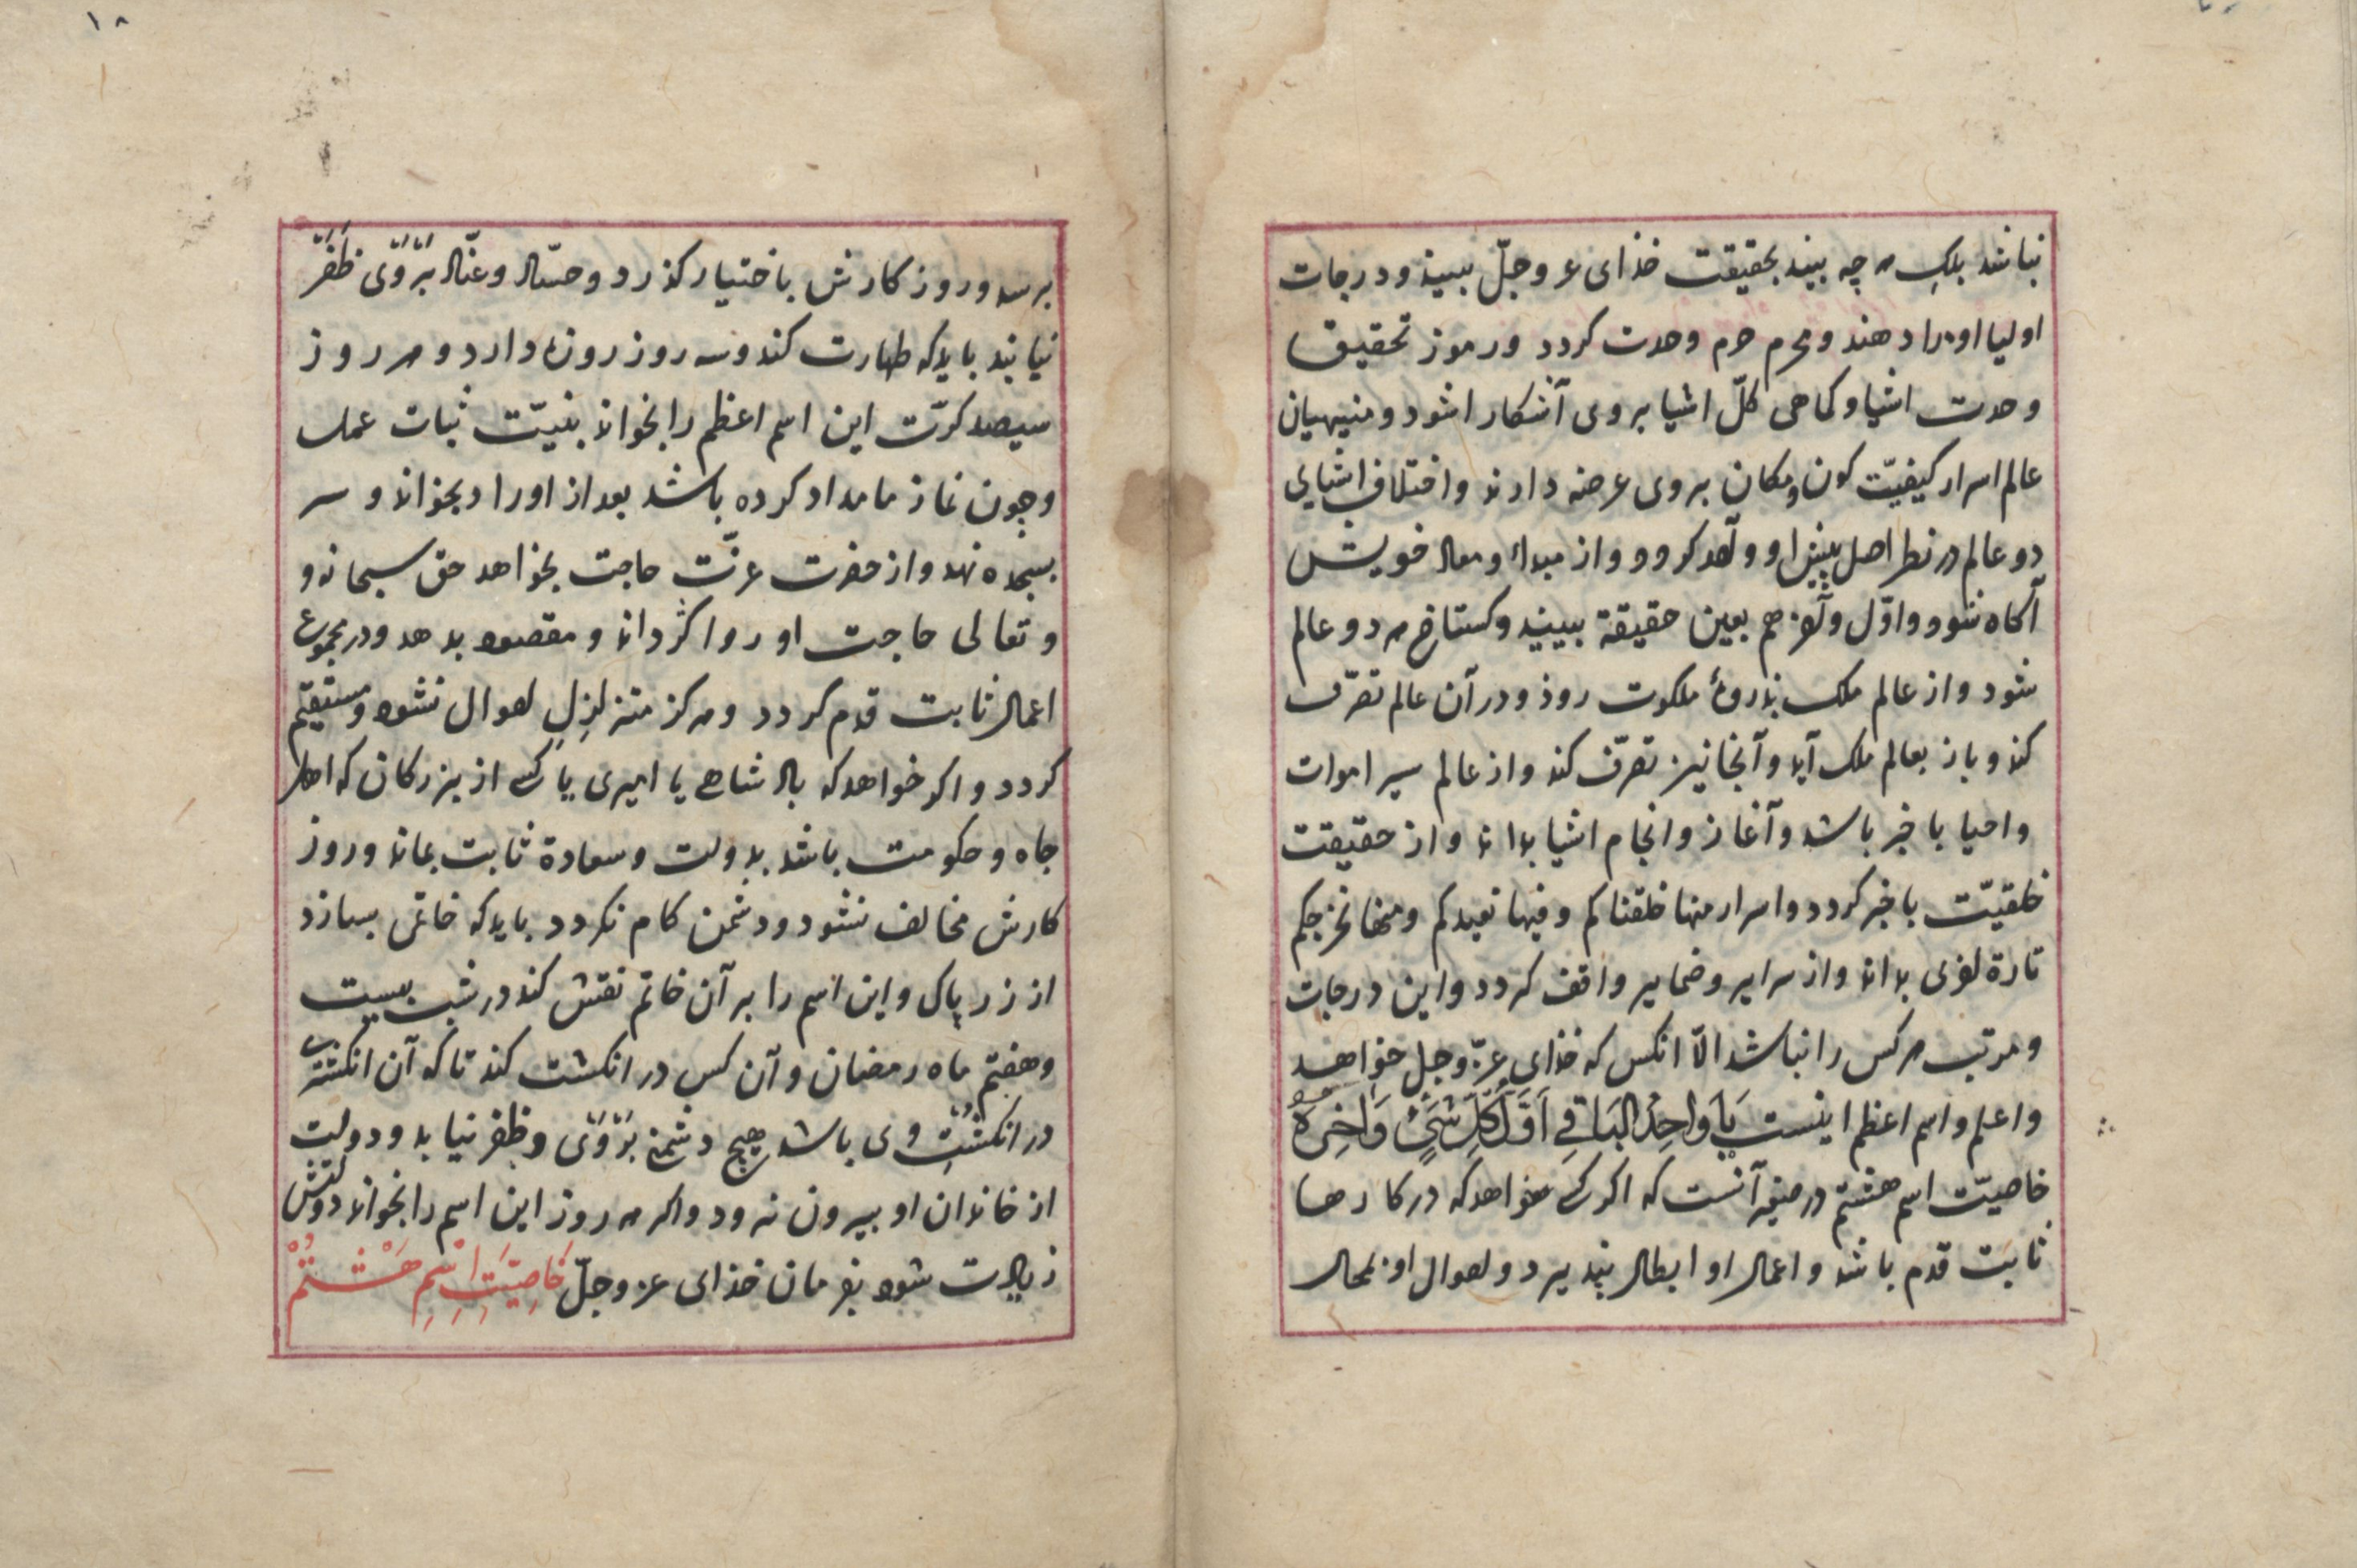 نباشد بلکه هر چه بیند بحقیقت خذای عز وجلّ ببیند ودرجات
اولیا اورا دهند ومحرم حرم وحدت کردد ورموز تحقیق
وحدت اشیا وکماهی کلّ اشیا بروی آشکارا شود ومنهیان
عالم اسرار کیفیّت کون ومکان بروی عرضه دارند واختلاف اشیای
دو عالم در نظر اهل بینش او واحد کردد واز مبداء ومعاد خویش
آکاه شود واوّل وآخر هم بعین حقیقة ببیند وکستاخ هر دو عالم
شود واز عالم ملک بذروهٔ ملکوت روذ ودر آن عالم تصرّف
کند وباز بعالم ملک آید وآنجا نیز تصرّف کند واز عالم سیر اموات
واحیا با خبر باشد وآغاز وانجام اشیا بداند واز حقیقت
خلقیّت با خبر کردد واسرار منها خلقناکم وفیها نعیدکم ومنها نخرجکم
تارة اخری بداند واز سرایر وضمایر واقف کردد واین درجات
ومرتبه هر کس را نباشد الّا انکس که خذای عزّ وجل خواهد
واعلم واسم اعظم اینست یَا وَاحِدُ البَاقِی اَوَّلَ کُلِّ شَیْءٍ وَاٰخِرَهُ
خاصیّت اسم هشتم در آنست که اکر کسی خواهد که در کارها
ثابت قدم باشد واعمال او ابطال نپذیرد واحوال او بمحال
۱۸
برسد وروز کارش باختیار کذرد وحسّاد وعدّال بَرْوَی ظَفَر
نیابند باید که طهارت کند وسه روز روزه دارد وهر روز
سیصد کرّت این اسم اعظم را بخواند بنیّت ثبات عمل
وچون نماز بامداد کرده باشد بعد از اوراد بخواند وسر
بسجده نهد واز حضرت عزّت حاجت بخواهد حق سبحانه و
وتعالی حاجت او روا کرداند ومقصود بدهد ودر مجموع
اعمال ثابت قدم کردد وهرکز متزلزل احوال نشود ومستقیم
کردد واکر خواهد که پادشاهی یا امیری یا کسی از بزرکان که اهل
جاه وحکومت باشد بدولت وسعادة ثابت بماند وروز
کارش مخالف نشود ودشمن کام نکردد باید که خاتمی بسازد
از زر پاک واین اسم را بر آن خاتم نقش کند در شب بیست
وهفتم ماه رمضان وآن کس در انکشت کند تا که آن انکشتری
در انکشت وی باشد هیچ دشمنی بَرْوَی وظفر نیابد ودولت
از خاندان او بیرون نرود واکر هر روز این اسم را بخواند دولتش
زیادت شود بفرمان خذای عز وجلّ خَاصِیَّتِ اِسْمِ هَشْتُمْ